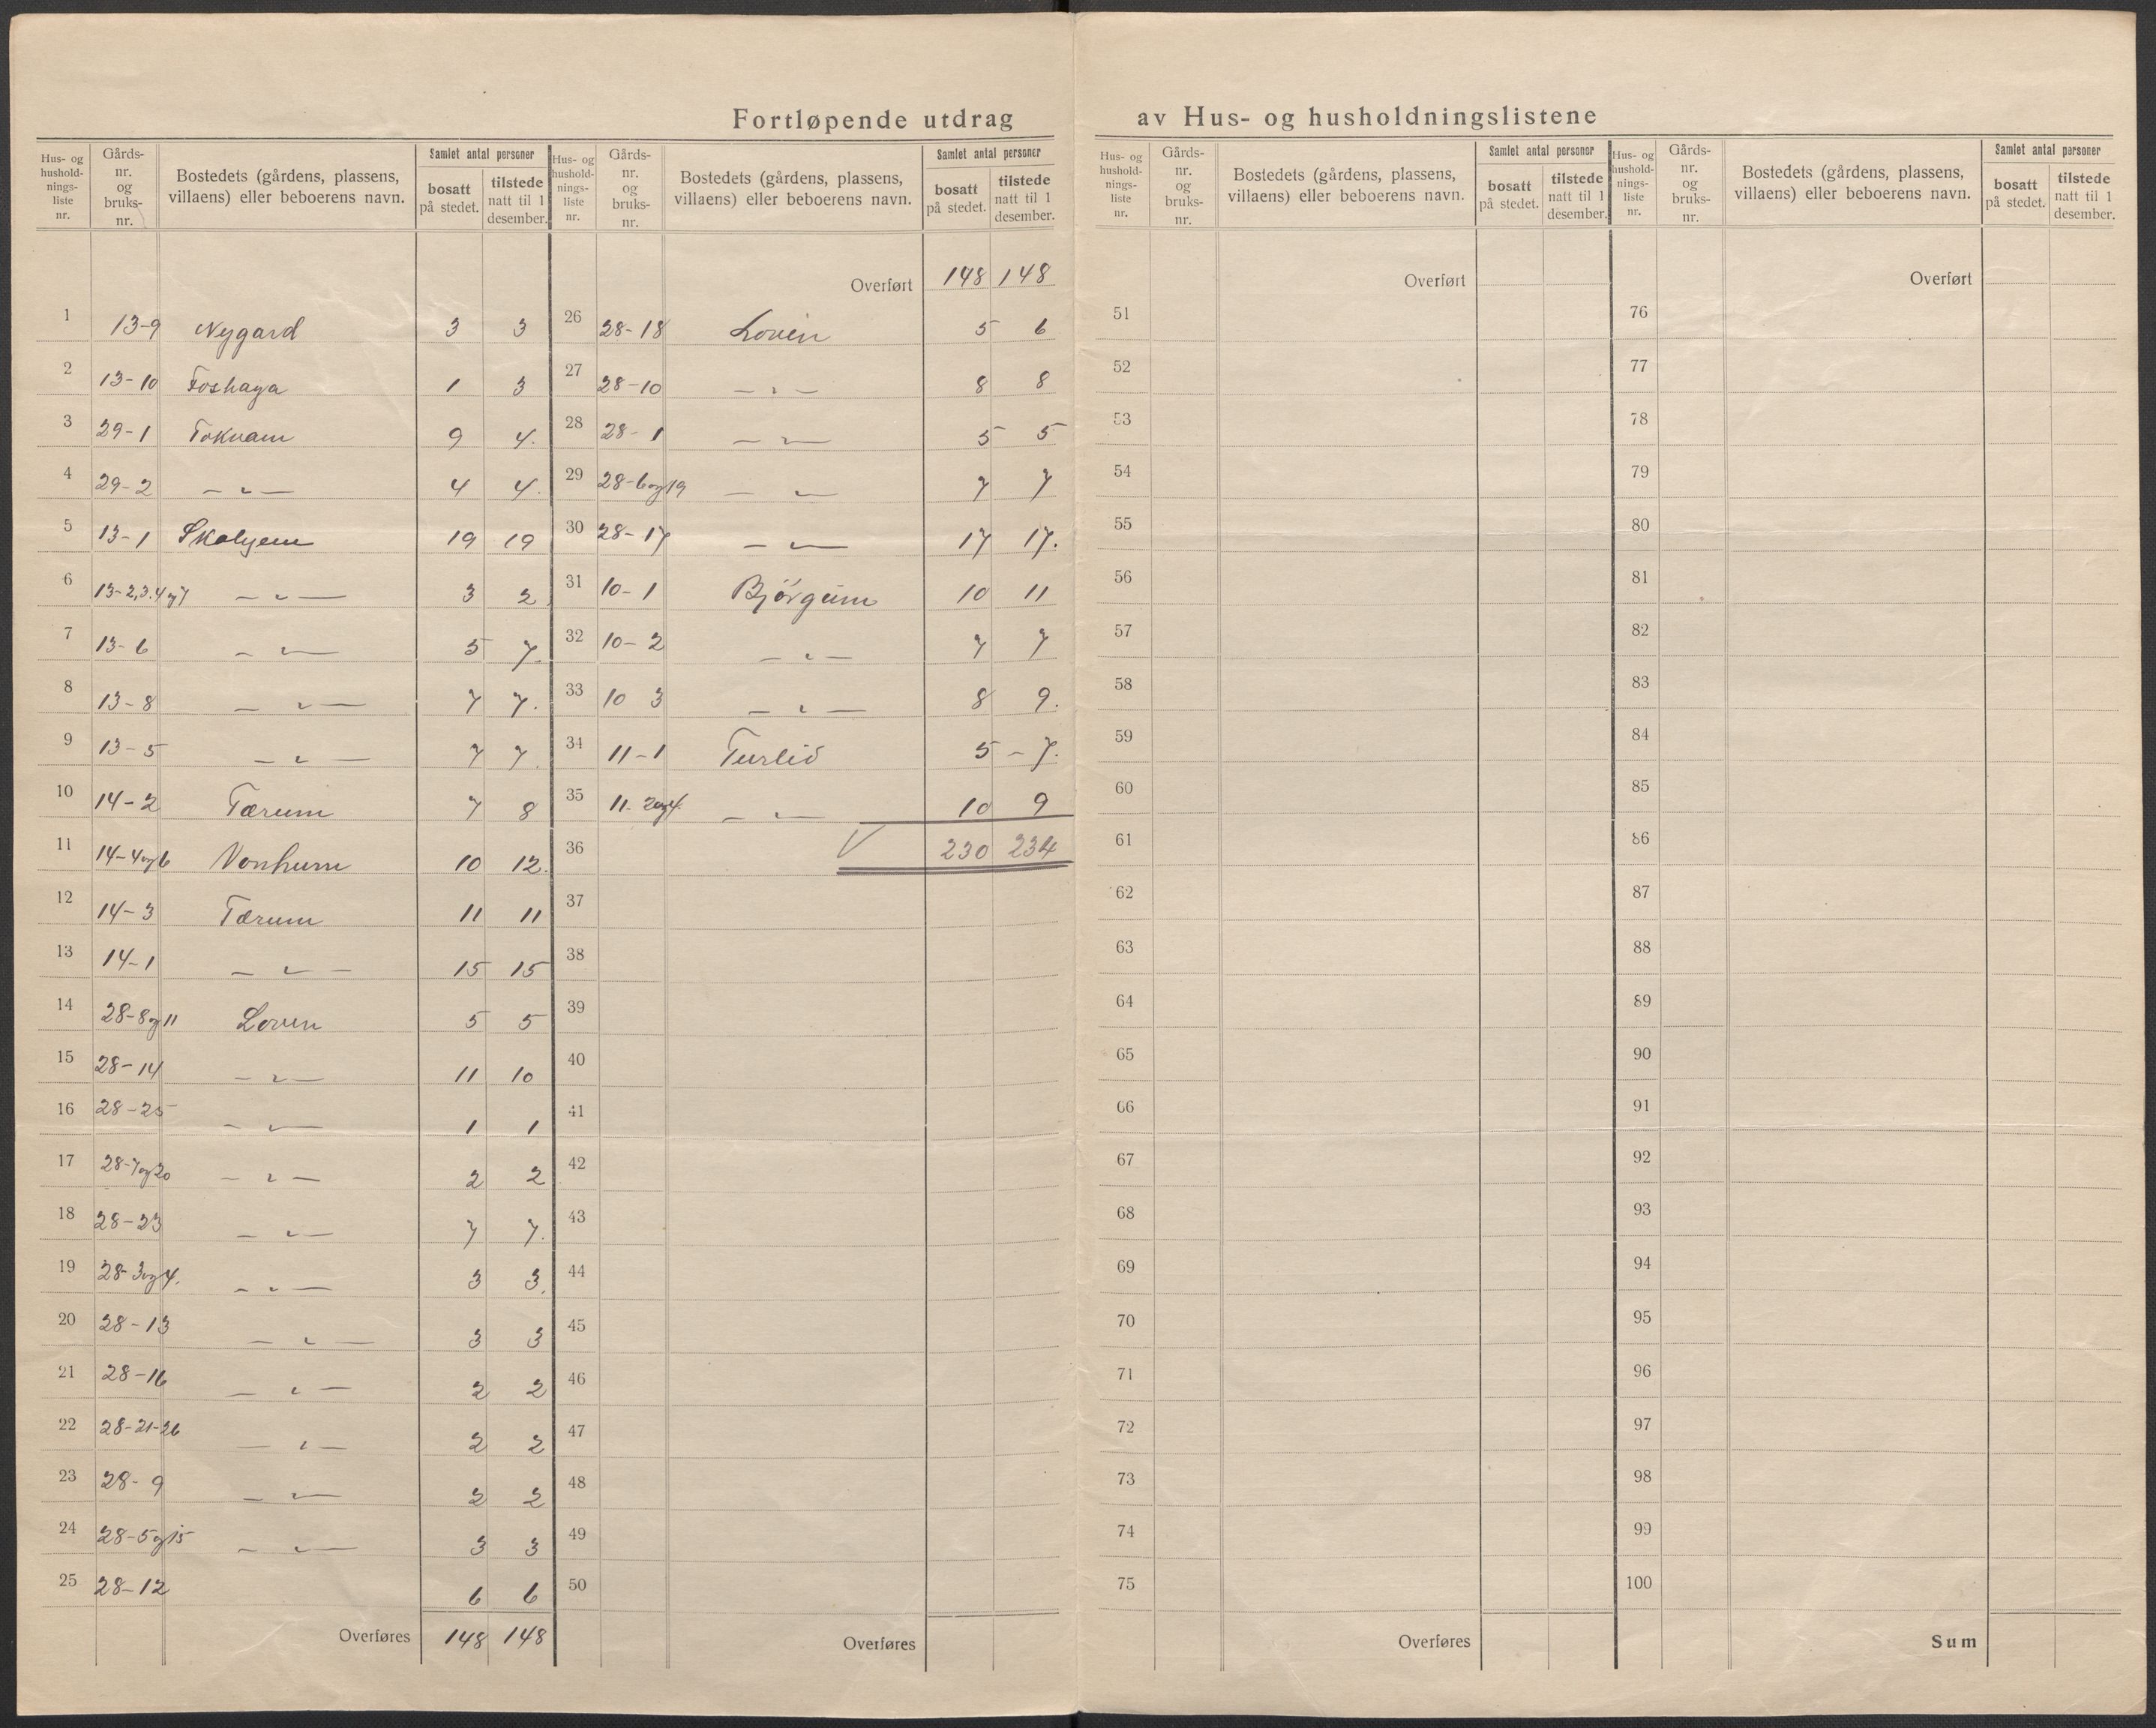 Fortløpende utdrag av Hus- og husholdningslistene
Hus- og husholdnings-liste nr. | Gårds-nr. og bruks-nr. | Bostedets (gårdens, plassens, villaens) eller beboerens navn. | Samlet antal personer | bosatt på stedet. | tilstede natt til 1 desember.
1 13-9 Nygard 3 3
2 13-10 Foshaga 1 3
3 29-1 Tokvam 9 4.
4 29-2 — " — 4 4.
5 13-1 Skalgem 19 19
6 13-2,3.4 og 7 — " — 3 2
7 13-6 — " — 5 7.
8 13-8 — " — 7 7.
9 13-5 — " — 7 7.
10 14-2 Tærum 7 8
11 14-4 og 6 Vonheim 10 12.
12 14-3 Tærum 11 11
13 14-1 — " — 15 15
14 28-8 og 11 Loven 5 5
15 28-14 — " — 11 10
16 28-25 — " — 1 1
17 28-7 og 20 — " — 2 2
18 28-23 — " — 7 7.
19 28-3 og 4. — " — 3 3.
20 28-13 — " — 3 3
21 28-16 — " — 2 2
22 28-21-26 — " — 2 2
23 28-9 — " — 2 2
24 28-5 og 15 — " — 3 3
25 28-12 6 6
Overføres 148 148
Hus- og husholdnings-liste nr. | Gårds-nr. og bruks-nr. | Bostedets (gårdens, plassens, villaens) eller beboerens navn. | Samlet antal personer | bosatt på stedet. | tilstede natt til 1 desember.
Overført 148 148
26 28-18 Loven 5 6
27 28-10 — " — 8 8
28 28-1 — " — 5 5
29 28-6 og 19 — " — 7 7
30 28-17 — " — 17 17.
31 10-1 Bjørgum 10 11
32 10-2 — " — 7 7
33 10 3 — " — 8 9.
34 11-1 Turlid 5 – 7.
35 11-2 og 4. — " — 10 9
36 230 234
37
38
39
40
41
42
43
44
45
46
47
48
49
50
Overføres
Hus- og husholdnings-liste nr. | Gårds-nr. og bruks-nr. | Bostedets (gårdens, plassens, villaens) eller beboerens navn. | Samlet antal personer | bosatt på stedet. | tilstede natt til 1 desember.
Overført
51
52
53
54
55
56
57
58
59
60
61
62
63
64
65
66
67
68
69
70
71
72
73
74
75
Overføres
Hus- og husholdnings-liste nr. | Gårds-nr. og bruks-nr. | Bostedets (gårdens, plassens, villaens) eller beboerens navn. | Samlet antal personer | bosatt på stedet. | tilstede natt til 1 desember.
Overført
76
77
78
79
80
81
82
83
84
85
86
87
88
89
90
91
92
93
94
95
96
97
98
99
100
Sum